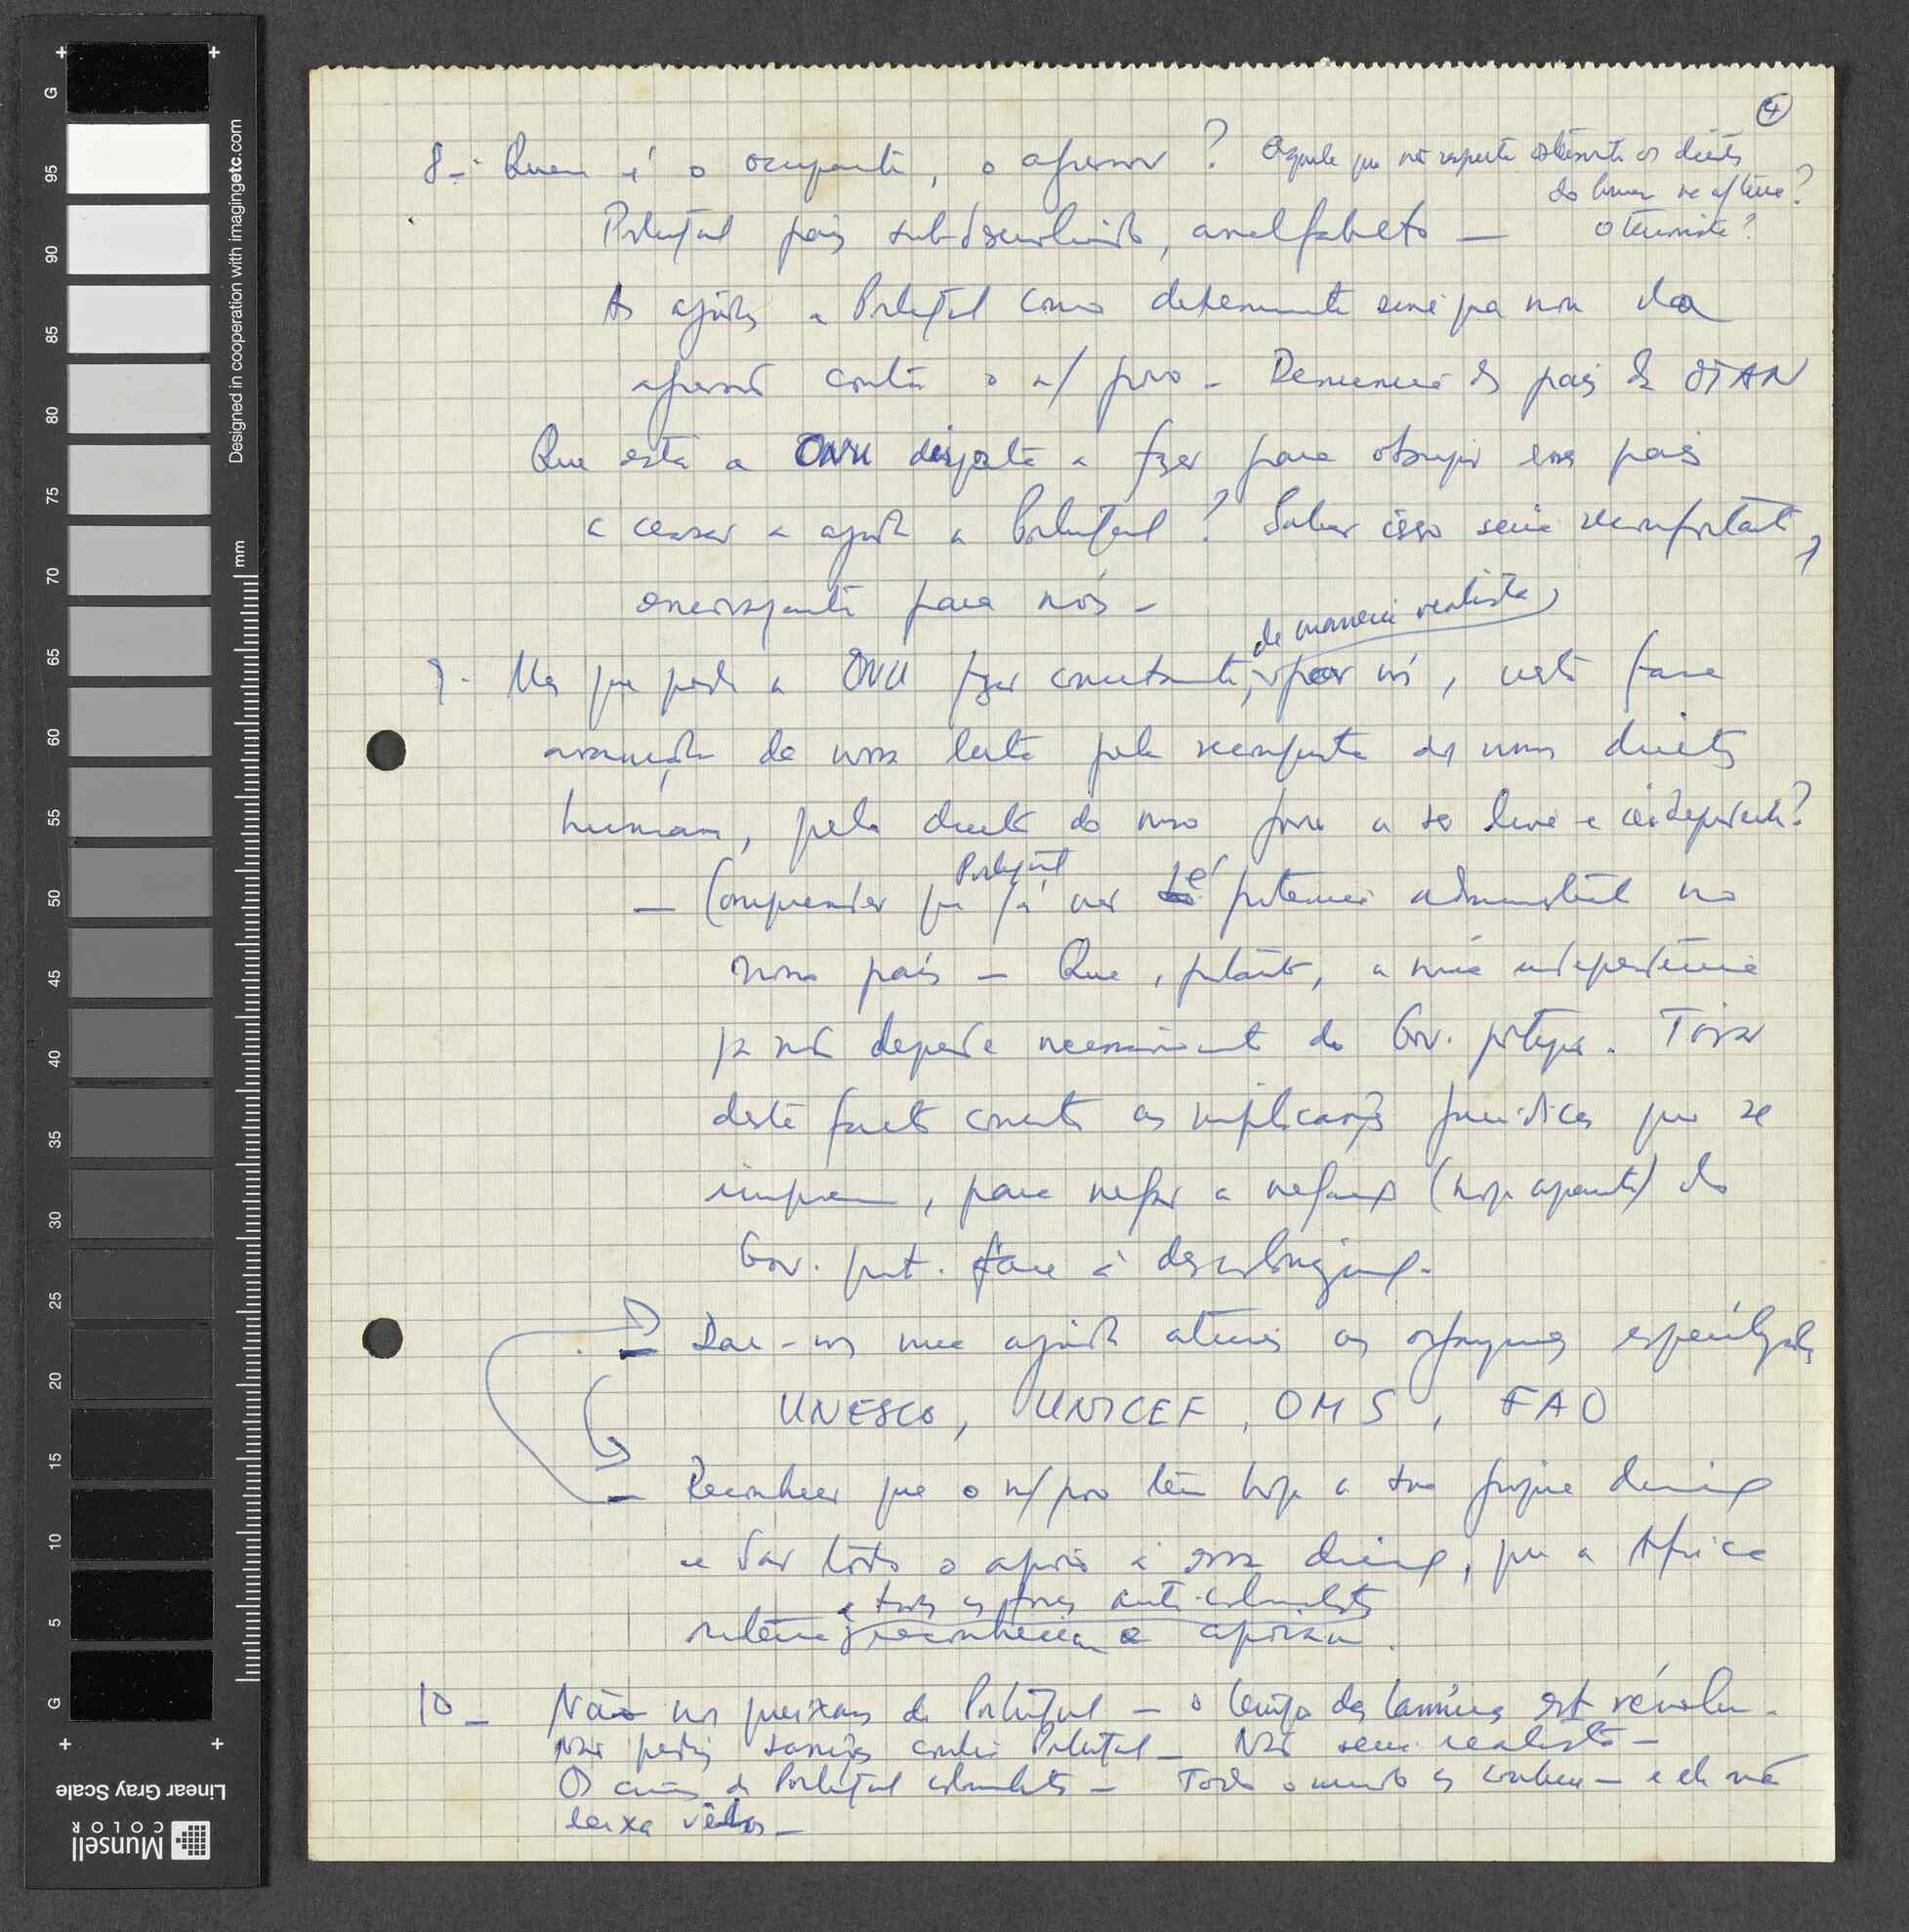 4
8- Quem é o ocupante, o agressor? Aquele que não respeita os direitos
do homem
o terrorista?
Portugal país subdesenvolvido, analfabeto —
As ajudas a Portugal como determinante sine qua non da
agressão contra o n/ povo - Denuncia dos países da OTAN
Que está a ONU disposta a fazer para obrigar esses países
a cessar a ajuda a Portugal? Saber isso seria reconfortante,
encorajante para nós -
de maneira realista,
9- Mas que pode a ONU fazer concretamente, por nós, nesta fase
avançada da nossa luta pela reconquista dos nossos direitos
humanos, pelo direito do nosso povo a ser livre e independente?
Portugal
— Compreender que já não é potencia administrante no
nosso país — Que, portanto, a nossa independência
já não depende necessariamente do Gov. português. Tirar
deste facto concreto as implicações jurídicas que se
impõem, para negar a negação (hoje aparente) do
Gov. port. face à descolonização.
— Dar-nos uma ajuda através as organizações especializadas
UNESCO, UNICEF, OMS, FAO
— Reconhecer que o n/ povo tem hoje a sua própria direcção
e dar todo o apoio a essa direcção, que a Africa
e todas as forças anti-colonialistas
inteira reconhecem e apoiam.
10 — Não nos queixamos de Portugal — o tempo das lamúrias est révolu.
Não pedir sanções contra Portugal — Não seria realista —
Os crimes de Portugal colonialista — Todo o mundo os conhece — e ele não
deixa
Designed in cooperation with imagingetc.com
mm
G 95 90 85 80 75 70 65 60 55 50 45 40 35 30 25 20 15 10 5 G
Linear Gray Scale
Munsell
COLOR